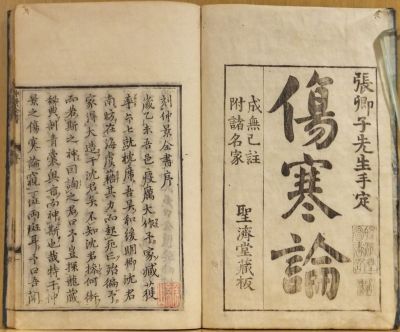 張卿子先生手定
傷寒論
成無己註
附諸名家
聖濟堂藏板
刻仲景全書序
歲乙未吾邑疫癘大作予家臧獲
率六七就枕席吾吳和緩明卿沈君
南昉在海虞藉其力而起死亡殆徧予
家得大造于沈君矣不知沈君操何術
而若斯之神因詢之君曰予豈探龍藏
秘典剖青囊奧旨而神斯也哉特于仲
景之傷寒論窺一斑兩斑耳予曰吾聞